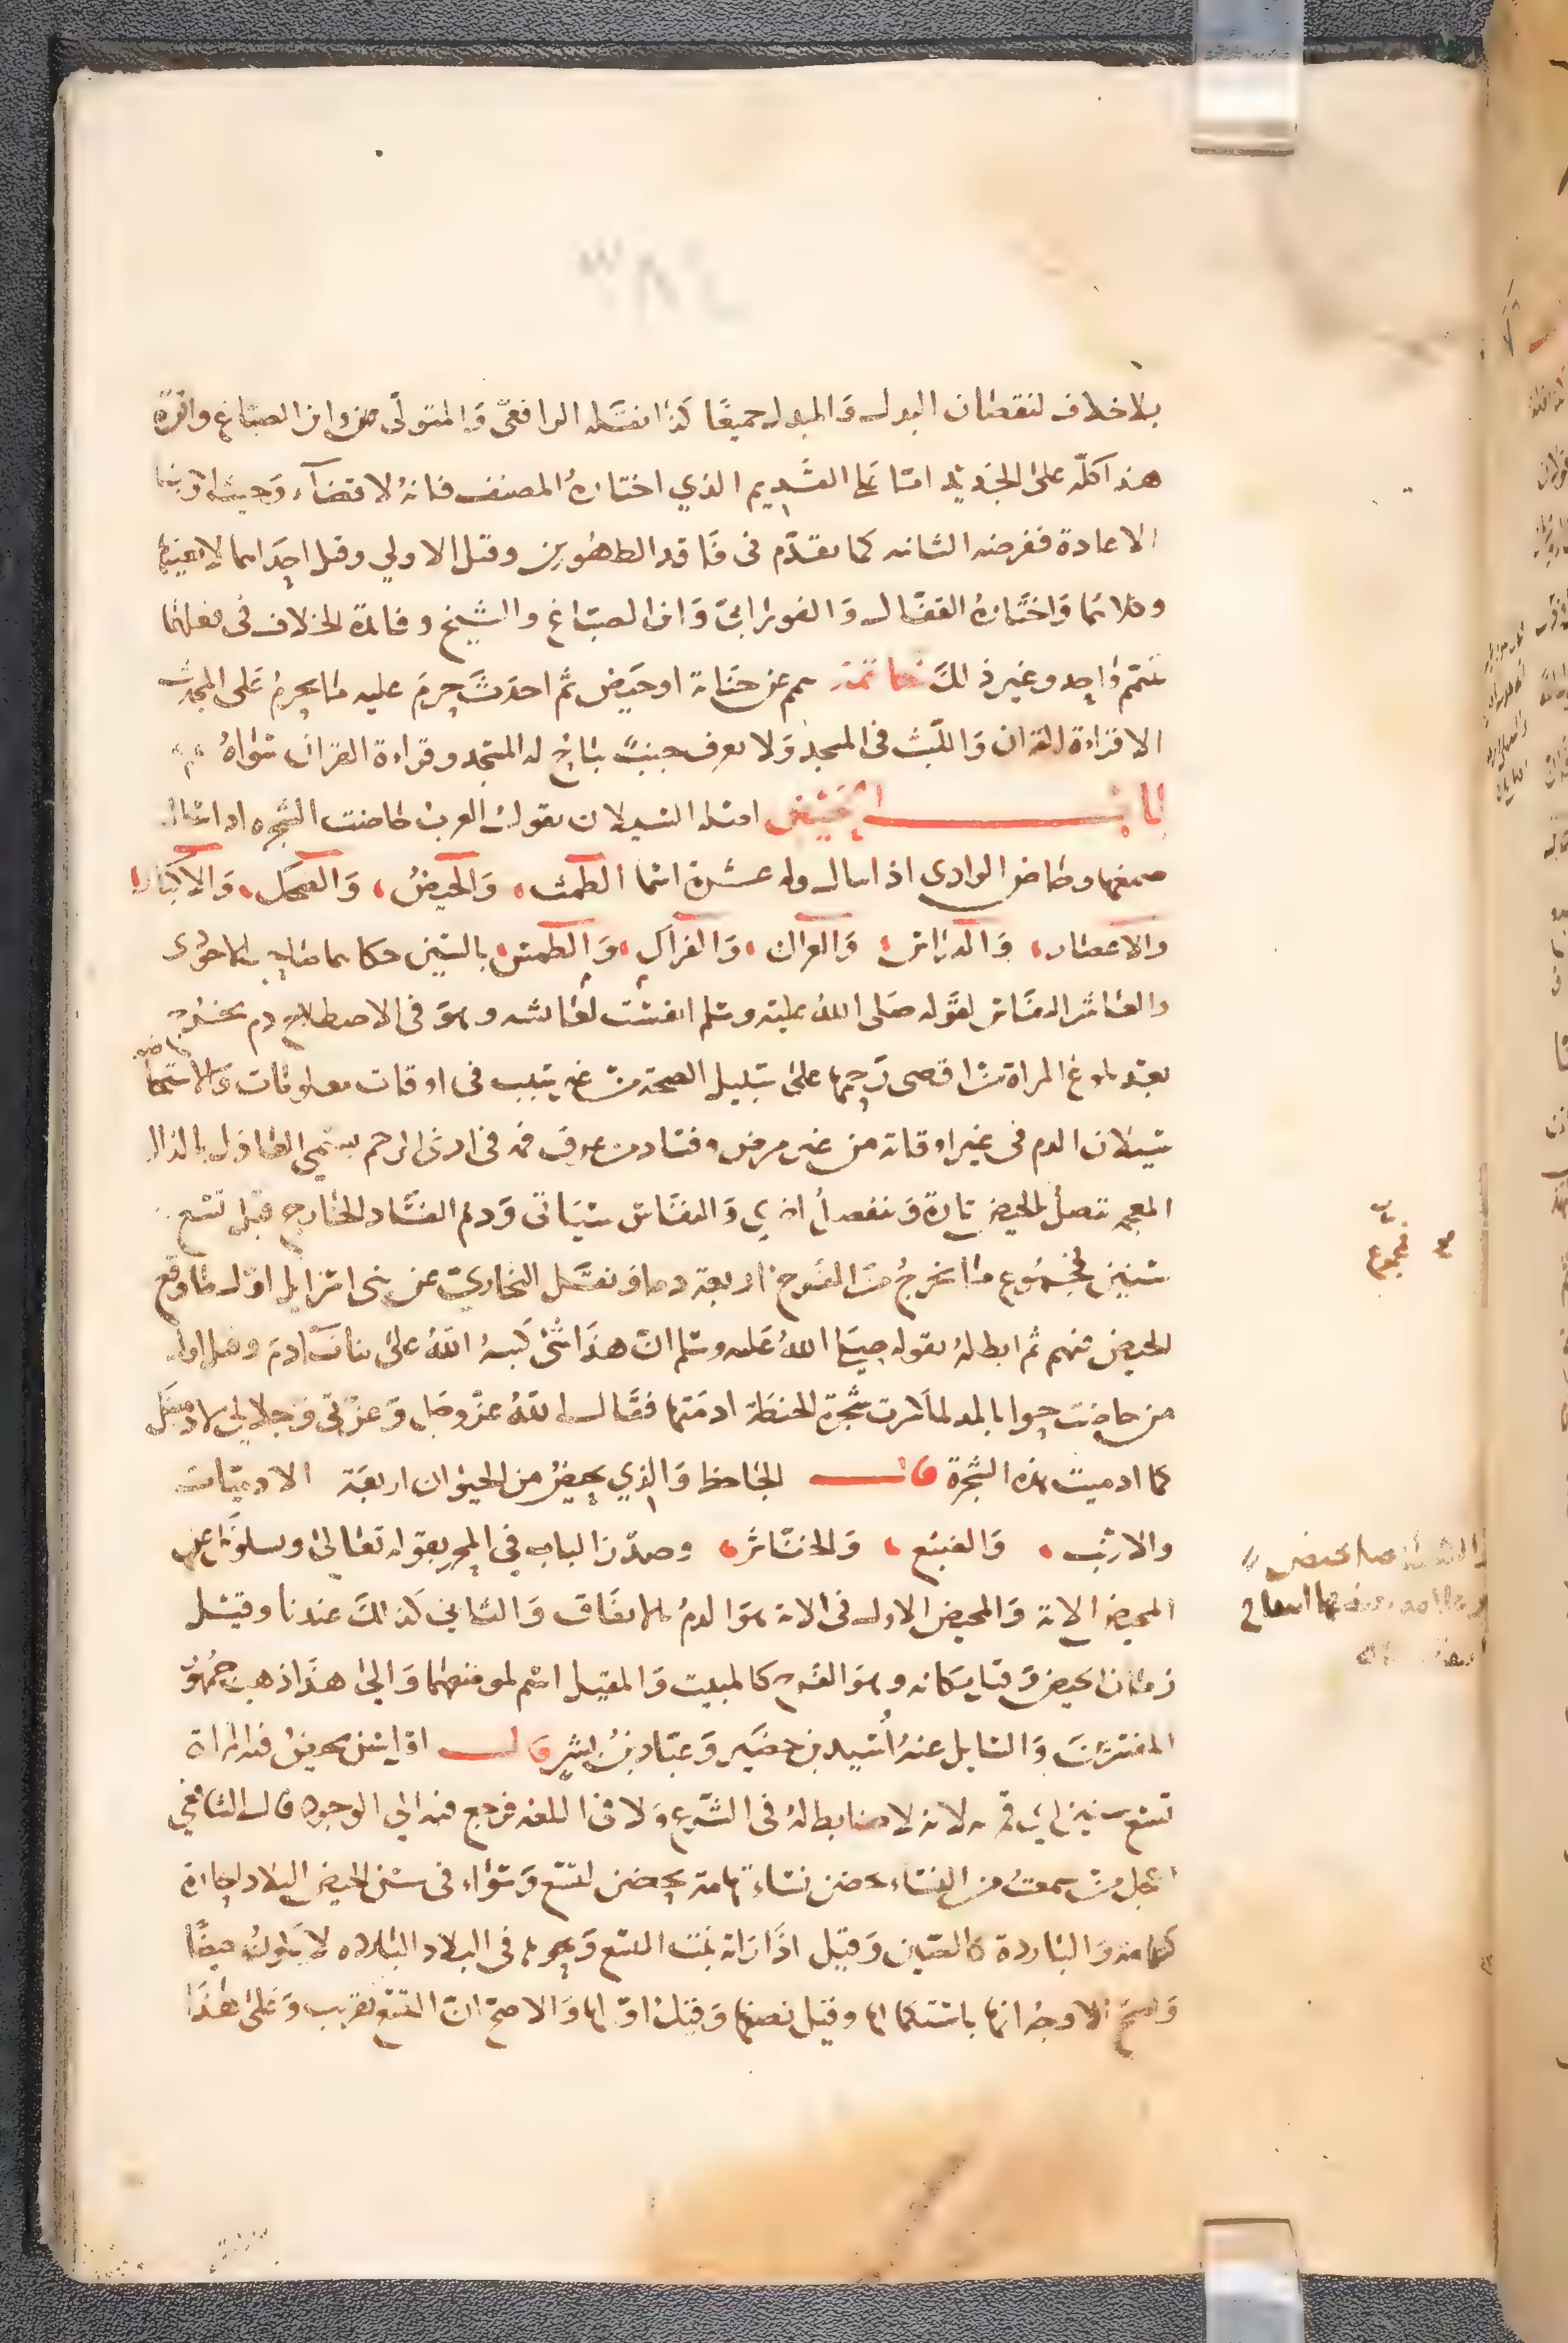 بلا خلاف لنقصان البدل والمبدل جميعا كذا نقله الرافعي والمتولي وابن الصباغ واقره
هذا كله على الجديد اما على القديم الذي اختاره المصنف فانه لا قضاء وحيث اوجبنا
الاعادة ففرضه الثانيه كما تقدم في فاقد الطهورين وقيل الاولي وقيل احداهما لا بعينها
وقيل كلاهما واختاره القفال والفوراني وابن الصباغ والشيخ وفائدة الخلاف في فعلهما
بتيمم واحد وغير ذلك خاتمة تيمم عن جنابة او حيض ثم احدث حرم عليه ما يحرم على المحدث
الا قراءة القران واللبث في المسجد ولا يعرف جنب يباح له المسجد وقراءة القران سواه
باب الحيض اصله السيلان تقول العرب حاضت الشجره اذا سال
صمغها وحاض الوادي اذا سال وله عشرة اسما الطمث والحيض والضحك والاكبار
والاعصار والدراس والعراك والفراك والطمس بالسين حكاهما صاحب الحاوى
والعاشر النفاس لقوله صلى الله عليه وسلم انفست لعائشه وهو في الاصطلاح دم يخرج
بعد بلوغ المراة من اقصى رحمها على سبيل الصحة من غير سبب في اوقات معلومات والاستحاضه
سيلان الدم في غير اوقاته من غير مرض وفساد من عرق فمه في ادنى الرحم يسمى العاذل بالذال
المعجمه تتصل بالحيض تارة وتنفصل اخرى والنفاس سياتى ودم الفساد الخارج قبل تسع
سنين فمجموع ما يخرج من الفرج اربعة دما ونقل البخاري عن بنى اسرايل اول ما وقع
الحيض فيهم ثم ابطله بقوله صلى الله عليه وسلم ان هذا شئ كتبه الله على بنات ادم وقيل اول
من حاضت حوا بالمد لما كسرت شجرة الحنطة ادمتها فقال الله عز وجل وعزتي وجلالي لادمينك
كما ادميت هذه الشجرة قال الجاحظ والذي يحيض من الحيوان اربعة الادميات
والارنب والضبع والخشاش وصدر الباب في المحرر بقوله تعالى ويسلونك عن
المحيض الاية والمحيض الاول في الاية هو الدم بالاتفاق والثاني كذلك عندنا وقيل
زمان الحيض وقيل مكانه وهو الفرج كالمبيت والمقيل اسم لموضعهما والى هذا ذهب جمهور
المفسرين والسايل عنه أسيد بن حضير وعباد بن بشر قال اقل سن يحيض فيه المراة
تسع سنين لانه لا ضابط له في الشرع ولا في اللغه فرجع فيه الي الوجود قال الشافعي
اعجل من سمعت من النساء يحضن نساء تهامة يحضن لتسع وسواء في سن الحيض البلاد الحارة
كتهامة والباردة كالصين وقيل اذا راته بنت التسع ونحوه في البلاد البارده لا يكون حيضا
واصح الاوجه انها باستكمالها وقيل نصفها وقيل اولها والاصح ان التسع تقريب وعلى هذا
فمجموع